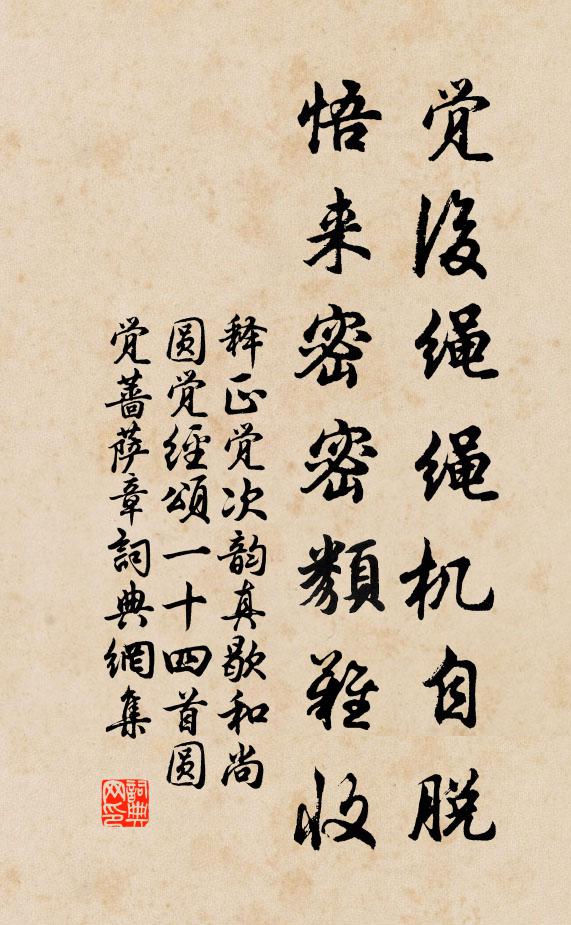 觉後绳绳机自脱
悟来密密类难收
释正觉次韵真歇和尚
圆觉经颂一十四首圆
觉蔷萨章词典网集
词典网印